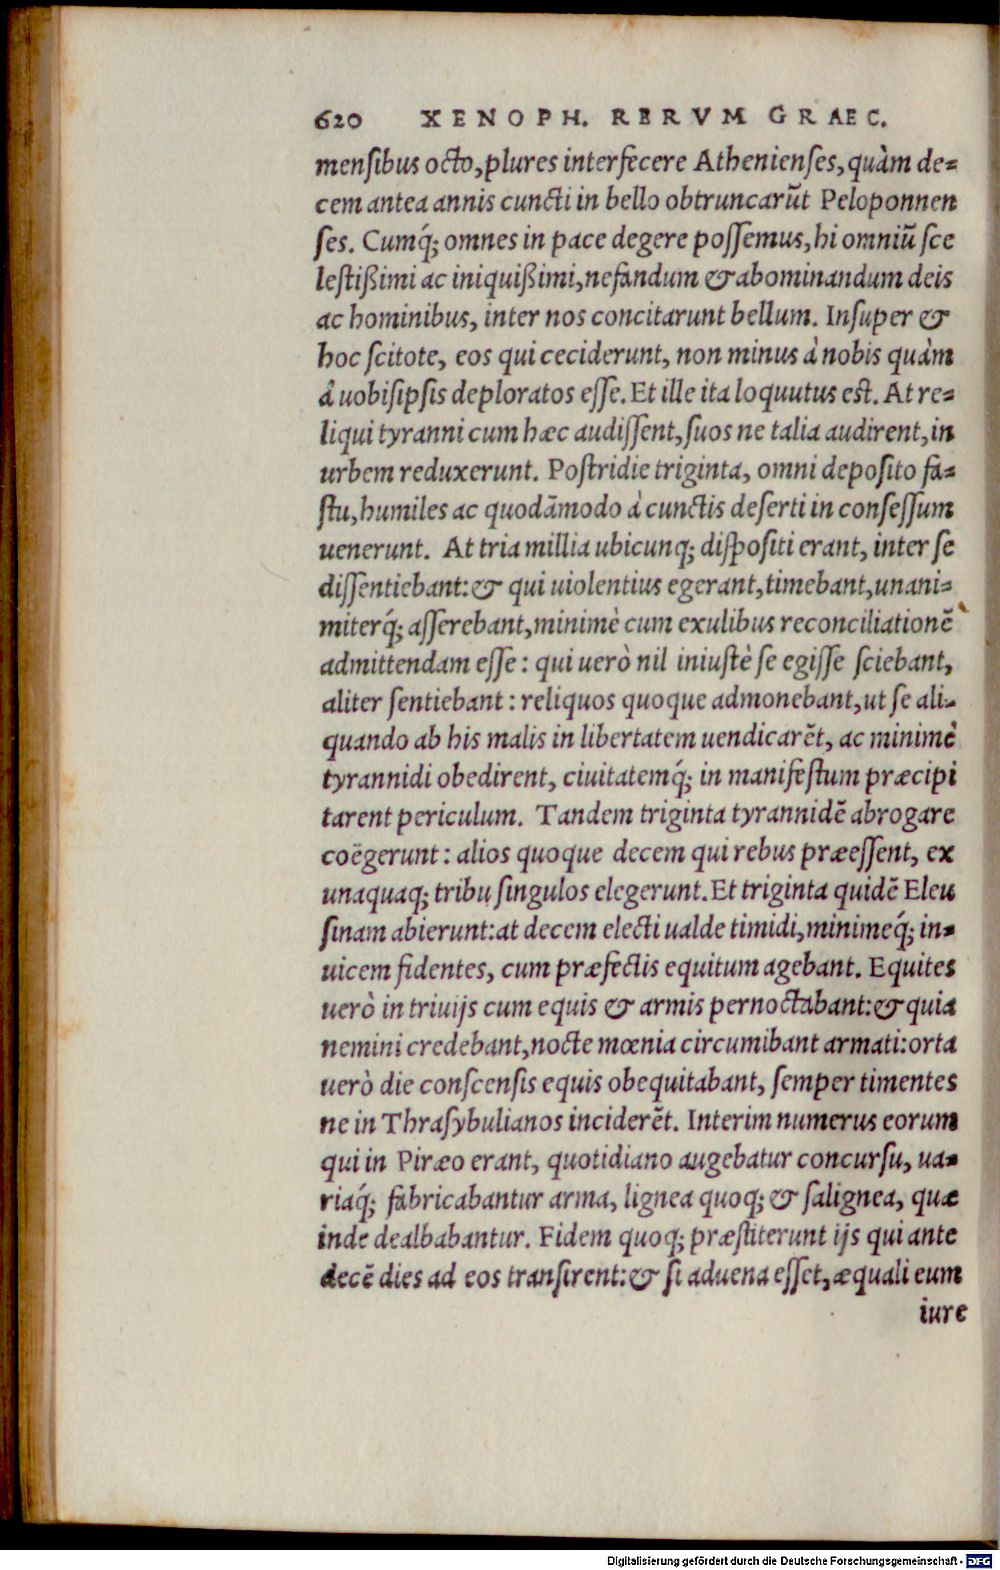 620 XENOPH. RERVM GRAEC.
mensibus octo, plures interfecere Athenienses, quàm de=
cem antea annis cuncti in bello obtruncarũt Peloponnen
ses. Cumq́; omnes in pace degere possemus, hi omniũ sce
lestißimi ac iniquißimi, nefandum & abominandum deis
ac hominibus, inter nos concitarunt bellum. Insuper &
hoc scitote, eos qui ceciderunt, non minus à nobis quàm
à uobisipsis deploratos esse. Et ille ita loquutus est. At re=
liqui tyranni cum hæc audissent, suos ne talia audirent, in
urbem reduxerunt. Postridie triginta, omni deposito fa=
stu, humiles ac quodãmodo à cunctis deserti in consessum
uenerunt. At tria millia ubicunq; dispositi erant, inter se
dissentiebant: & qui uiolentius egerant, timebant, unani=
miterq́; asserebant, minimè cum exulibus reconciliationẽ
admittendam esse: qui uerò nil iniustè se egisse sciebant,
aliter sentiebant: reliquos quoque admonebant, ut se ali=
quando ab his malis in libertatem uendicarẽt, ac minimè
tyrannidi obedirent, ciuitatemq́; in manifestum præcipi
tarent periculum. Tandem triginta tyrannidẽ abrogare
coẽgerunt: alios quoque decem qui rebus præessent, ex
unaquaq; tribu singulos elegerunt. Et triginta quidẽ Eleu
sinam abierunt: at decem electi ualde timidi, minimeq́; in=
uicem fidentes, cum præfectis equitum agebant. Equites
uerò in triuijs cum equis & armis pernoctabant: & quia
nemini credebant, nocte mœnia circumibant armati: orta
uerò die conscensis equis obequitabant, semper timentes
ne in Thrasybulianos inciderẽt. Interim numerus eorum
qui in Piræo erant, quotidiano augebatur concursu, ua=
riaq́; fabricabantur arma, lignea quoq; & salignea, quæ
inde dealbabantur. Fidem quoq; præstiterunt ijs qui ante
decẽ dies ad eos transirent: & si aduena esset, æquali eum
iure
Digitalisierung gefördert durch die Deutsche Forschungsgemeinschaft - DFG